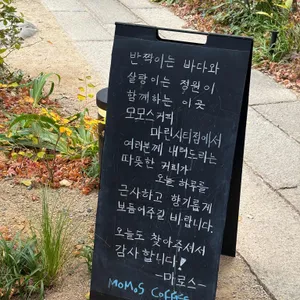 반짝이는 바다와
살랑이는 정원이
함께하는 이곳
모모스커피
마린시티점에서
여러분께 내려드리는
따뜻한 커피가
오늘 하루를
근사하고 향기롭게
보듬어주길 바랍니다.
오늘도 찾아주셔서
감사합니다!
-마로스-
MOMOS COFFEE